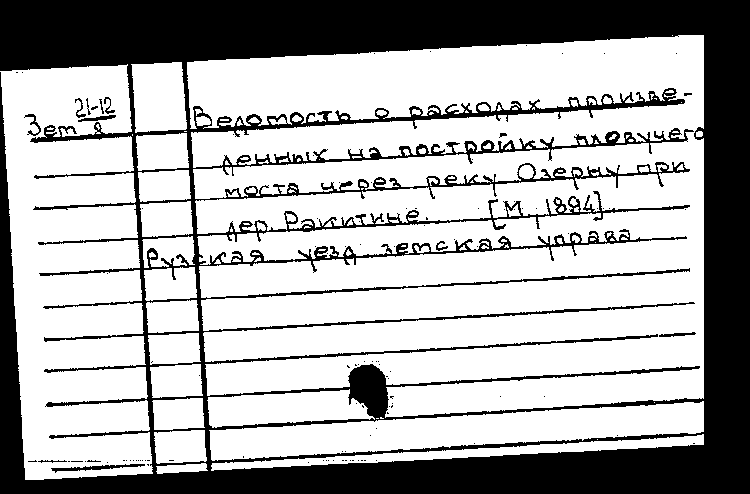 Зет 21-12/8
Ведомость о расходах, произве-
денных на постройку пловучего
моста через реку Озерну при
дер. Ракитине. [М., 1894].
Рузская уезд. земская управа.